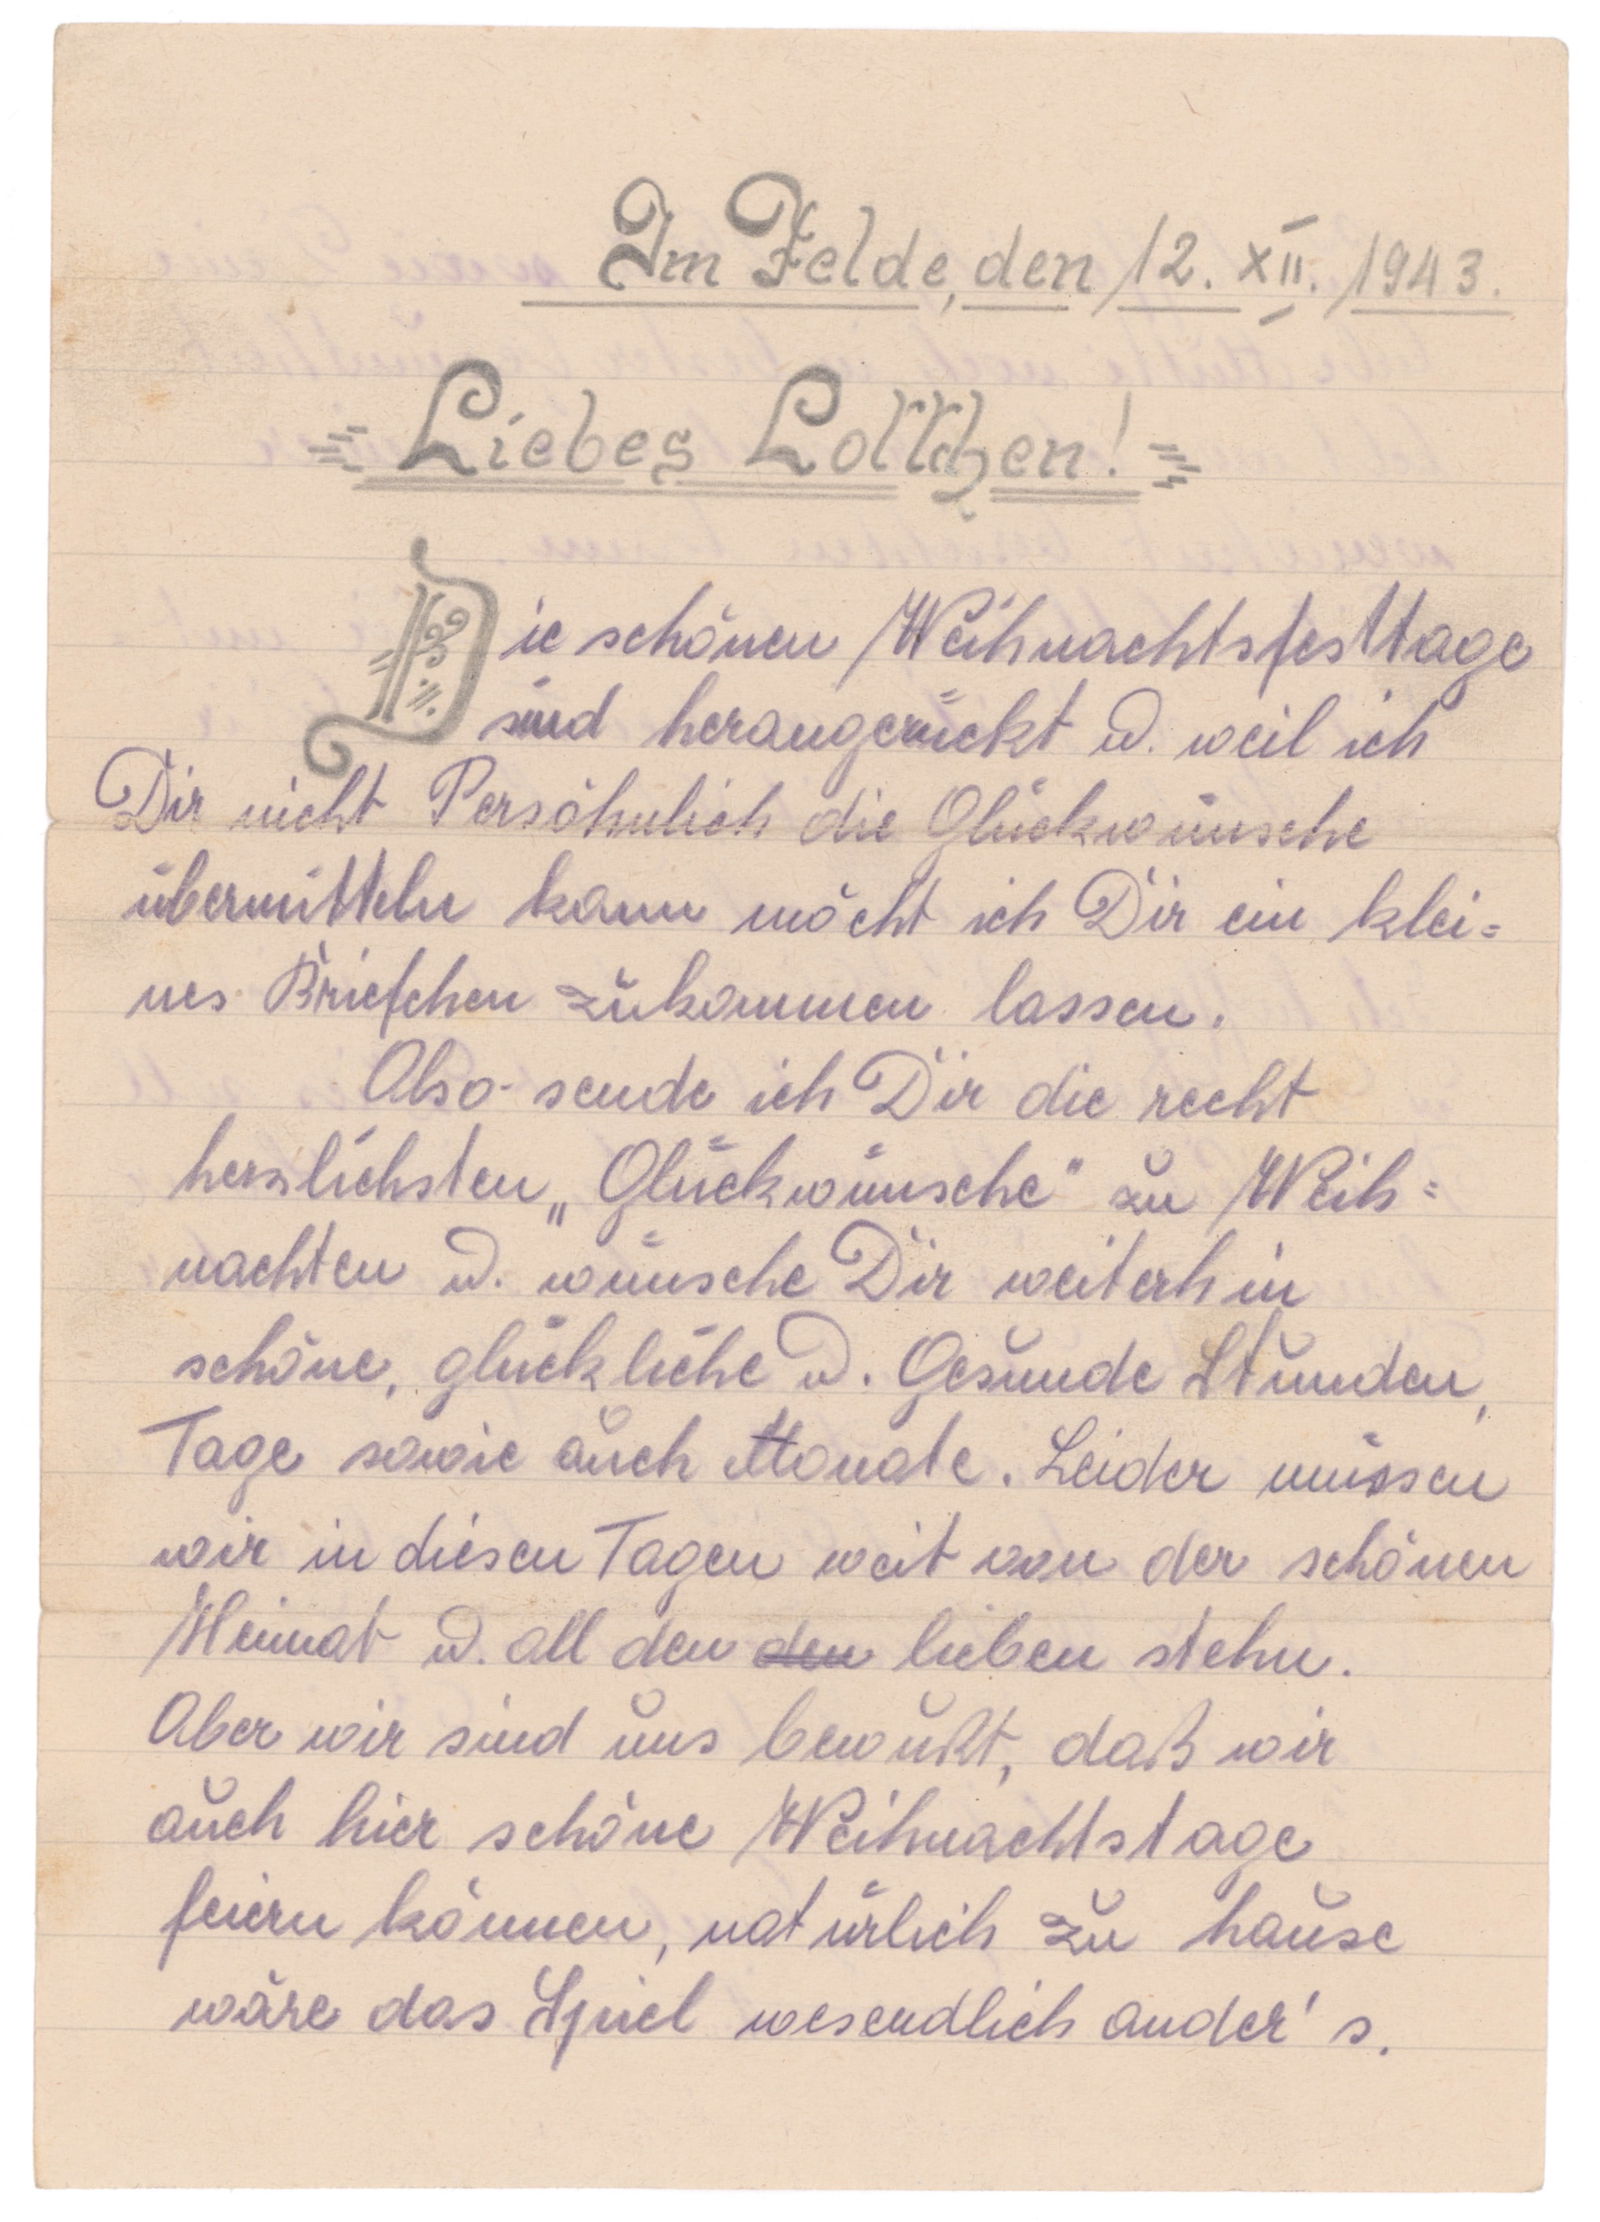 Im Felde, den 12. XII. 1943.
Liebes Lottchen!
Die schönen Weihnachtsfesttage
sind herangerückt u. weil ich
Dir nicht Persöhnlich die Glückwünsche
übermitteln kann möcht ich Dir ein klei=
nes Briefchen zukommen lassen.
Also sende ich Dir die recht
herzlichsten „Glückwünsche" zu Weih=
nachten u. wünsche Dir weiterhin
schöne, glückliche u. Gesunde Stunden,
Tage sowie auch Monate. Leider müssen
wir in diesen Tagen weit von der schönen
Heimat u. all den den lieben stehn.
Aber wir sind uns bewußt, daß wir
auch hier schöne Weihnachtstage
feiern können, natürlich zu hause
wäre das Spiel wesendlich ander's.